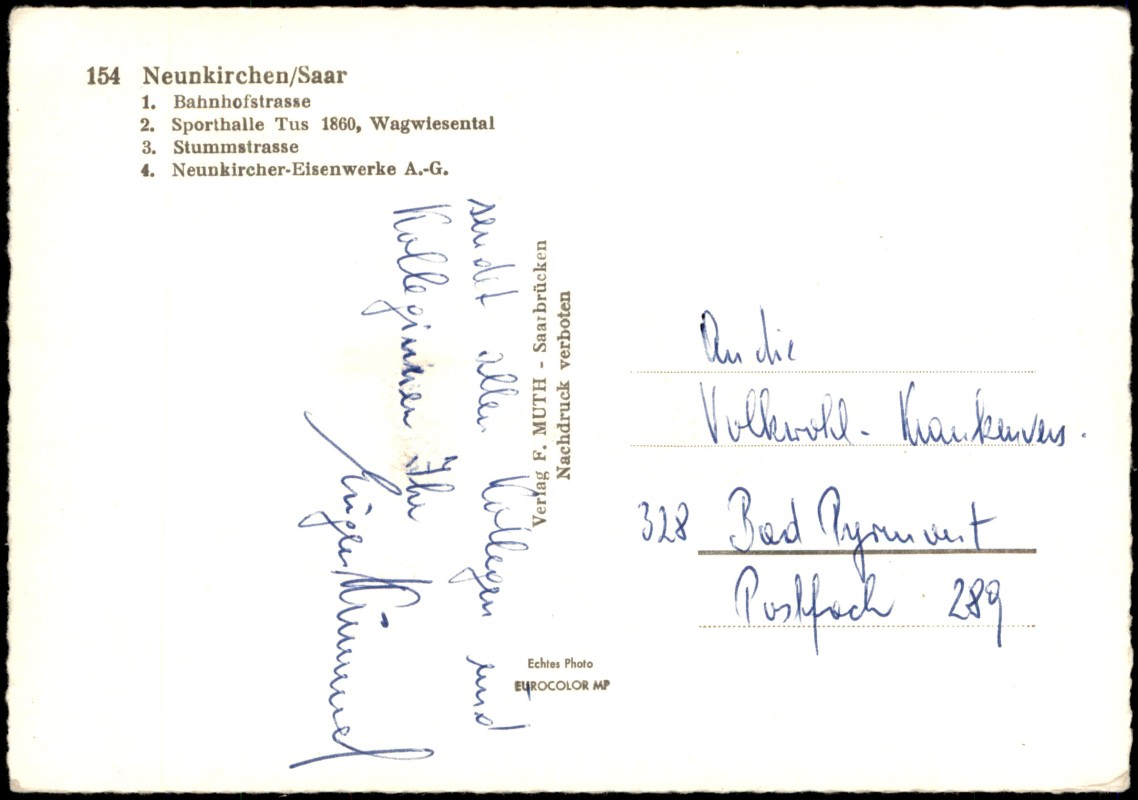 154 Neunkirchen/Saar
1. Bahnhofstrasse
2. Sporthalle Tus 1860, Wagwiesental
3. Stummstrasse
4. Neunkircher-Eisenwerke A.-G.
sendet allen Kollegen und
Kolleginnen Ihr
Eugen Kümmel
Verlag F. MUTH - Saarbrücken
Nachdruck verboten
An die
Volkwohl- Krankenvers.
328 Bad Pyrmont
Postfach 289
Echtes Photo
EUROCOLOR MP